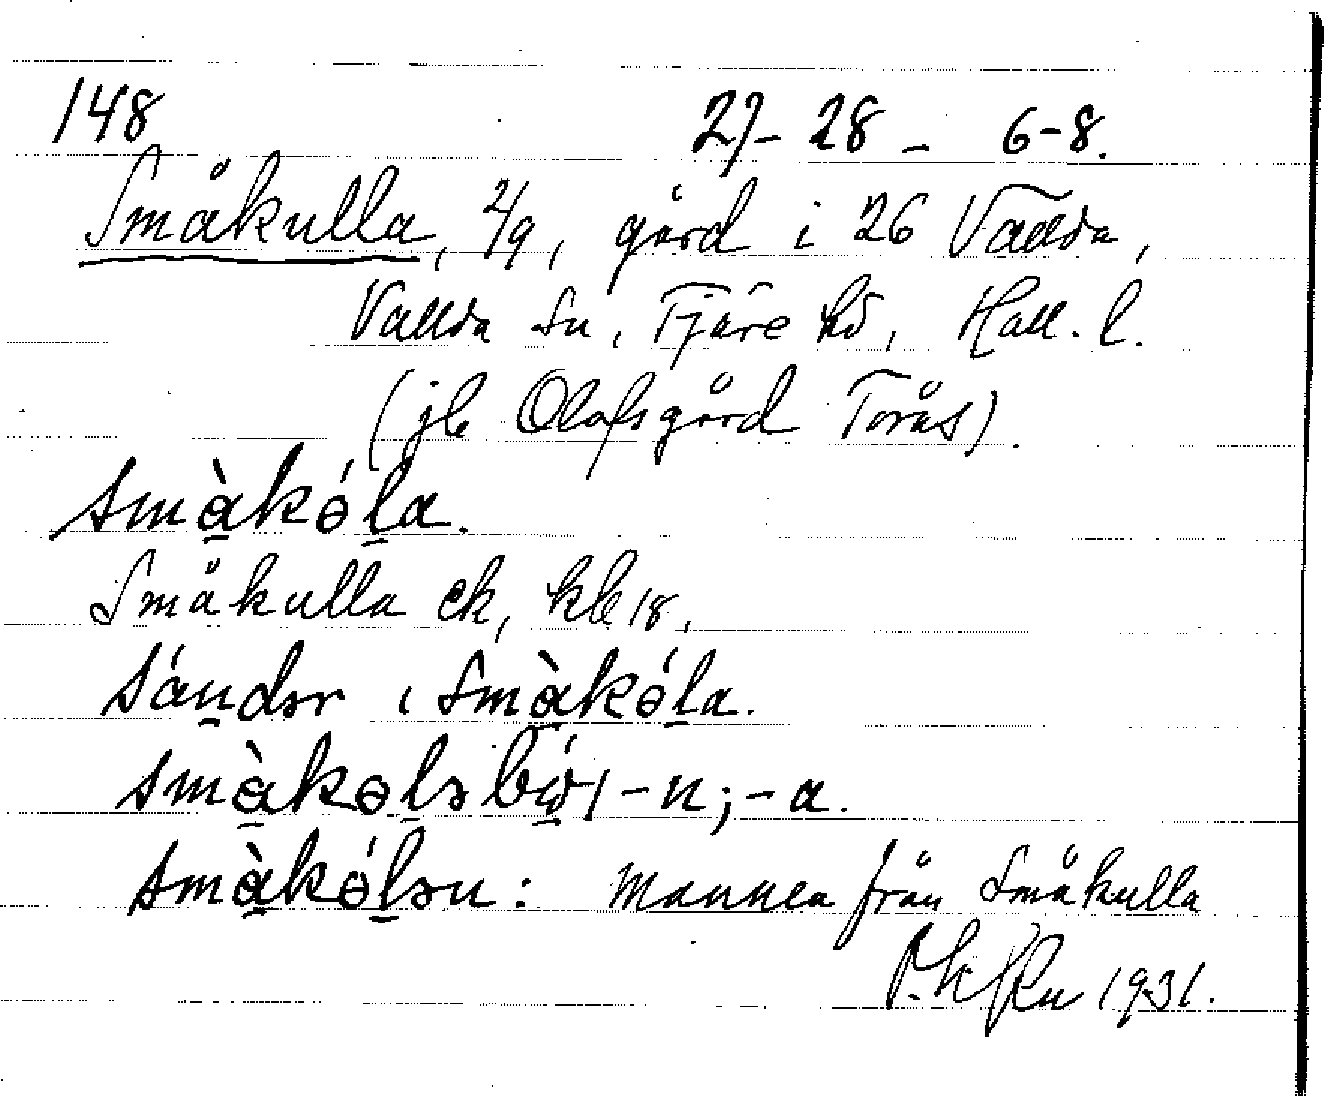 148 27- 28 - 6-8.
Småkulla, 2/9, gård i 26 Vallda,
Vallda sn, Fjäre hd, Hall. l.
(jb Olofsgård Torås).
smὰkɵ́la.
Småkulla ek, kb 18,
sándər i smὰkɵ́la.
smὰkɵləbω, -n; -a.
smὰkɵ́lən: mannen från Småkulla
1931.